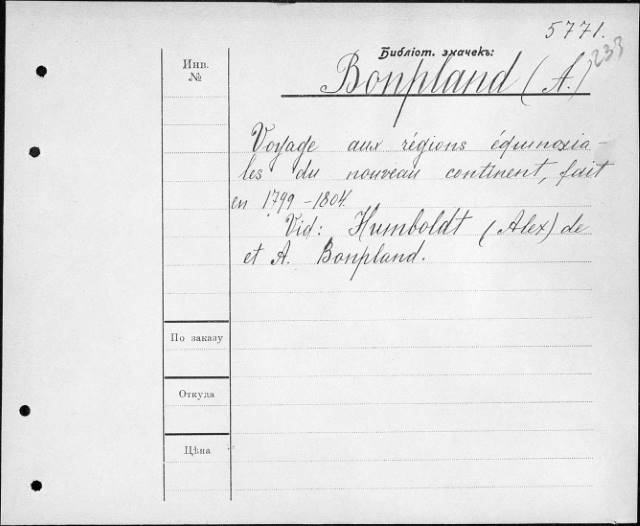 5771.
233
Библіот. значекъ:
Инв.
№
Bonpland (A.)
Voyage aux régions équinoxia-
les du nouveau continent, fait
en 1799-1804.
Vid: Humboldt (Alex) de
et A. Bonpland.
По заказу
Откуда
Цѣна